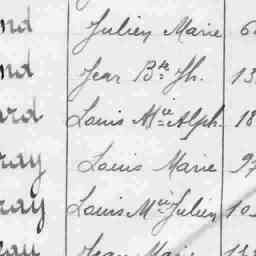 nd Julien Marie 6
nd Jean Bte Jh. 13
ard Louis Mie Alph. 18
ray Louis Marie 97
ray Louis Mie Julien 10
Jean Marie